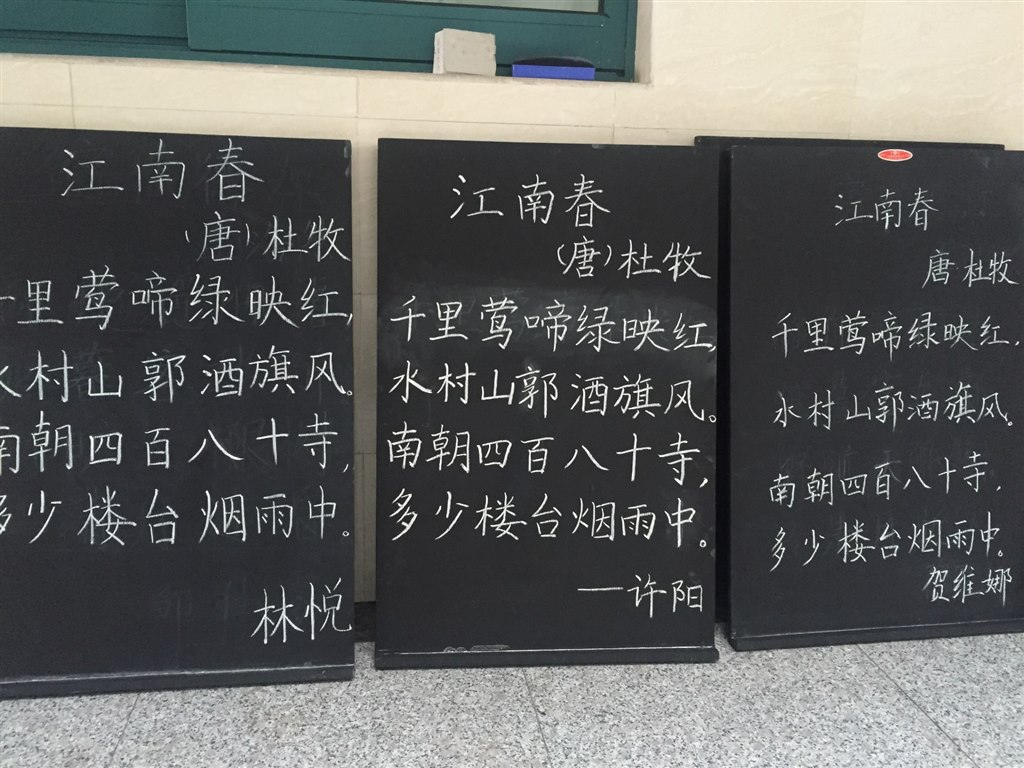 江南春
(唐)杜牧
千里莺啼绿映红,
水村山郭酒旗风。
南朝四百八十寺,
多少楼台烟雨中。
林悦
江南春
(唐)杜牧
千里莺啼绿映红,
水村山郭酒旗风。
南朝四百八十寺,
多少楼台烟雨中。
—许阳
江南春
唐 杜牧
千里莺啼绿映红,
水村山郭酒旗风。
南朝四百八十寺,
多少楼台烟雨中。
贺维娜